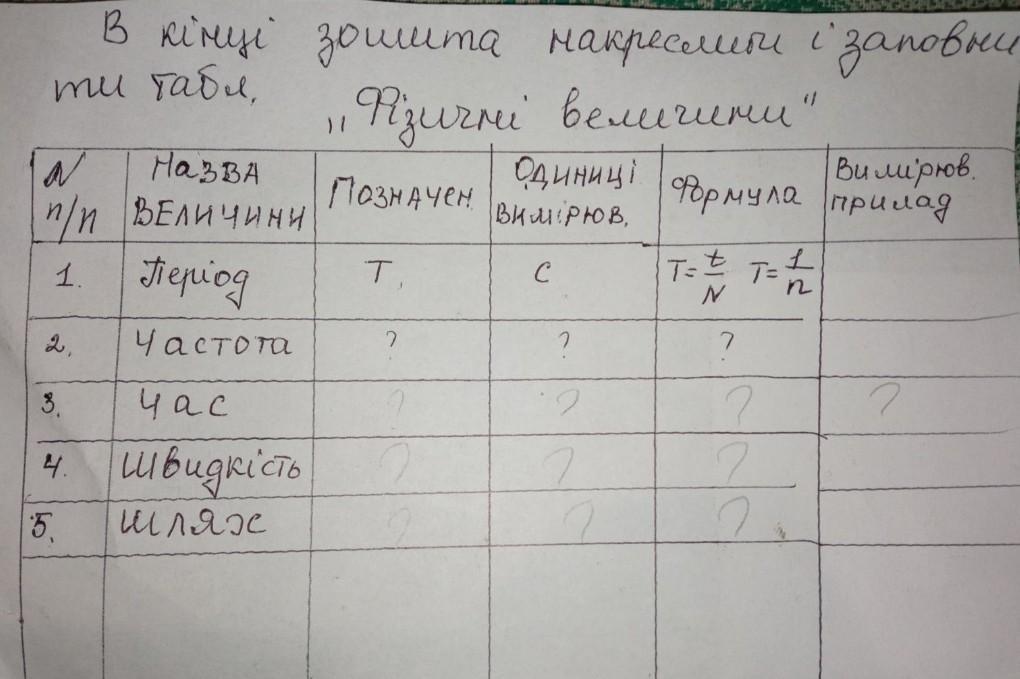 В кінці зошита накреслити і заповни
ти табл.
„Фізичні величини"
N п/п | Назва величини | Позначен. | Одиниці вимірюв. | Формула | Вимірюв. прилад
1. | Період | T. | с | T=t/N T=1/n |
2. | Частота | ? | ? | ? |
3. | Час | ? | ? | ? | ?
4. | Швидкість | ? | ? | ? |
5. | Шлях | ? | ? | ? |